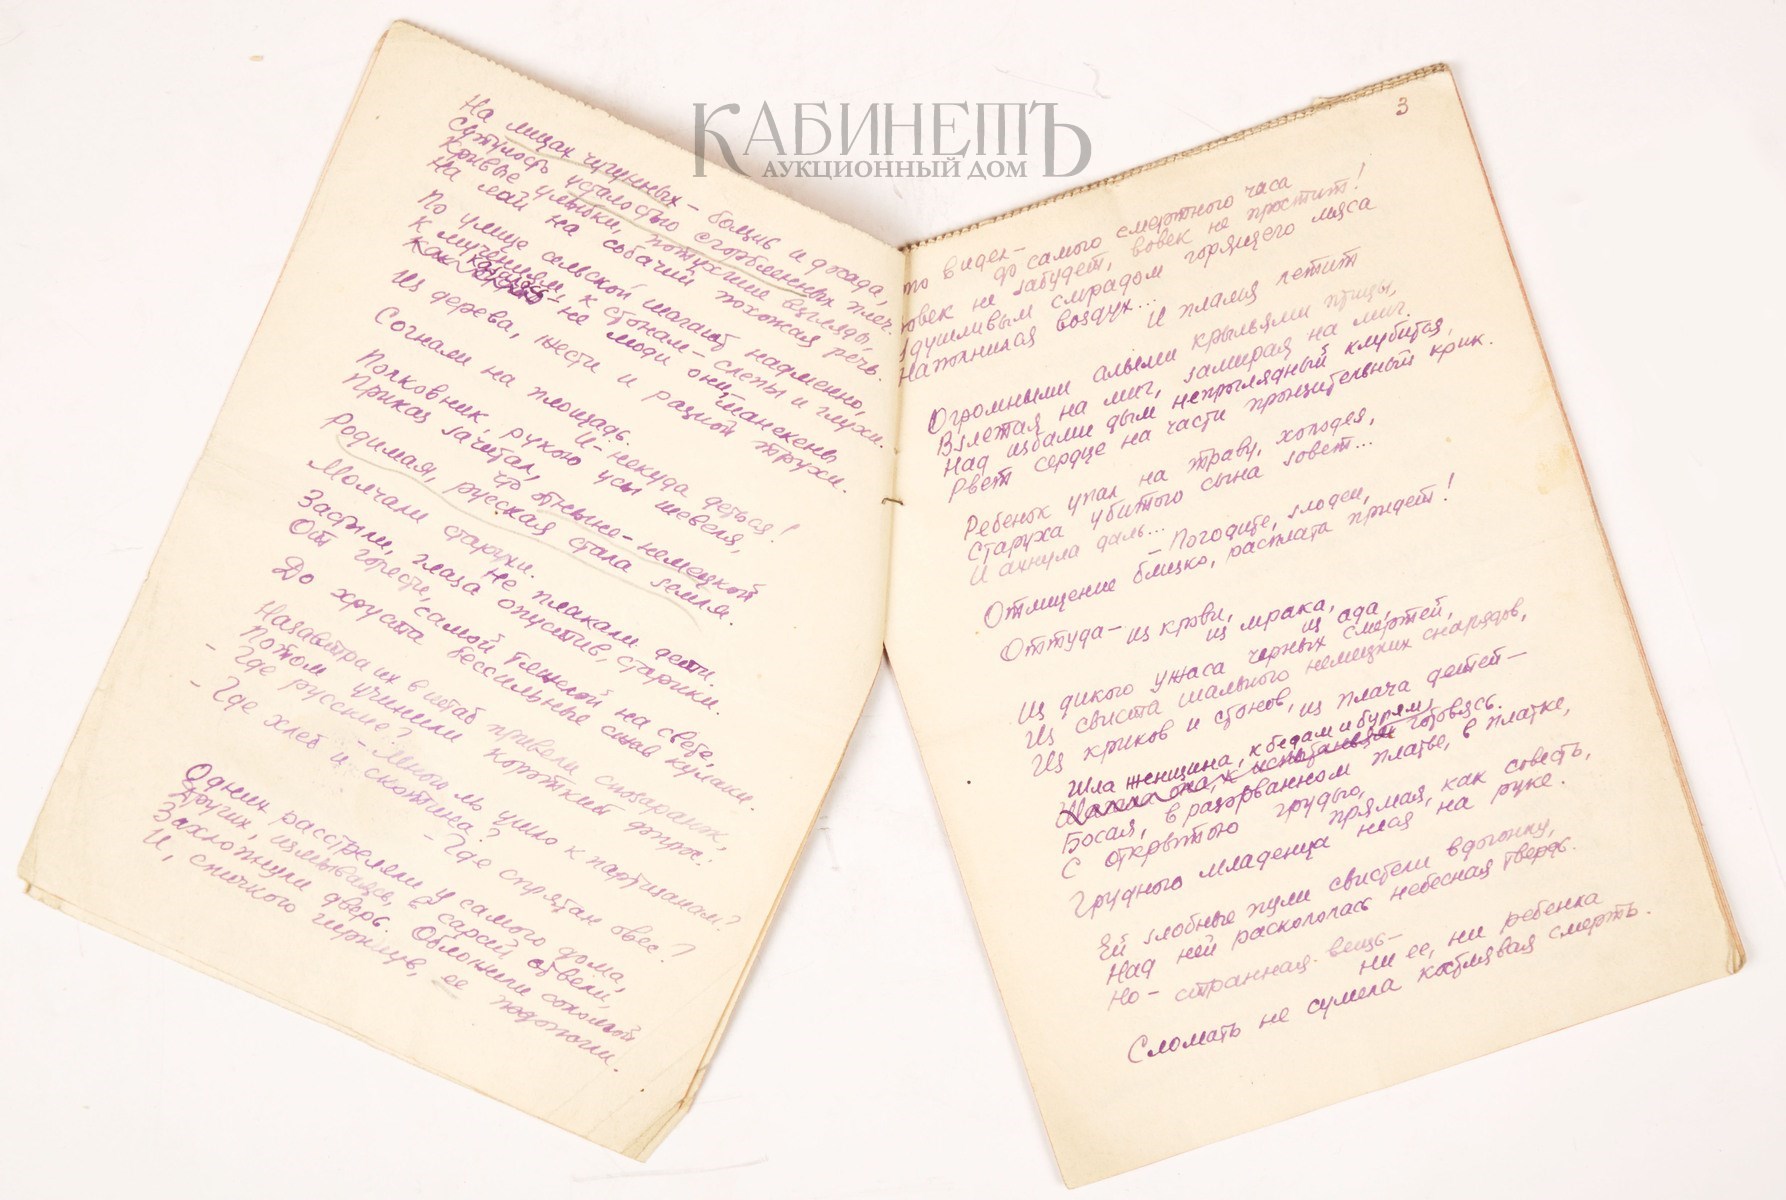 КАБИНЕТЪ
АУКЦИОННЫЙ ДОМ
На лицах чугунных – и досада,
Сутулость усталостью сгорбленных плеч.
Кривые улыбки, потухшие взгляды,
На лай на собачий похожая речь.
По улице сельской шагают надменно,
К мученьям, к стонам – слепы и глухи.
Как – не люди они, манекены
Из дерева, жести и разной трухи.
Согнали на площадь.
И – некуда деться!
Полковник, рукою усы шевеля,
Приказ зачитал, что отныне – немецкой
Родимая, русская стала земля.
Молчали старухи.
Не плакали дети.
Застыли, глаза опустив, старики.
От горести, самой тяжелой на свете,
До хруста бессильные сжав кулаки.
Назавтра их в штаб привели спозаранок,
Потом учинили короткий допрос:
– Где русские?
– Много ль ушло к партизанам?
– Где хлеб и скотина?
– Где спрятан овес?
Одних расстреляли у самого дома,
Других, в сарай отвели,
Захлопнули дверь. Обложили соломой
И, спичкою чиркнув, ее подожгли.
3
то видел –
до самого смертного часа
овек не забудет, вовек не простит!
душливым смрадом горящего мяса
Напоминая воздух...
И пламя летит
Огромными алыми крыльями птицы,
Взлетая на миг, замирая на миг.
Над избами дым непроглядный клубится,
Рвет сердце на части пронзительный крик.
Ребенок упал на траву, холодея,
Старуха убитого сына зовет...
И ахнула даль...
– Погодите, злодеи,
Отмщение близко, расплата придет!
Оттуда – из крови,
из мрака,
из ада,
Из дикого ужаса черных смертей,
Из свиста шального немецких снарядов,
Из криков и стонов, из плача детей –
Шла женщина, к бедам и бурям
она, к испытаньям готовясь.
Босая, в разорванном платье, в платке,
С открытою грудью,
прямая, как совесть,
Грудного младенца неся на руке.
Ей злобные пули свистели вдогонку,
Над ней раскололась небесная твердь.
Но – странная вещь –
ни ее, ни ребенка
Сломать не сумела костлявая смерть.